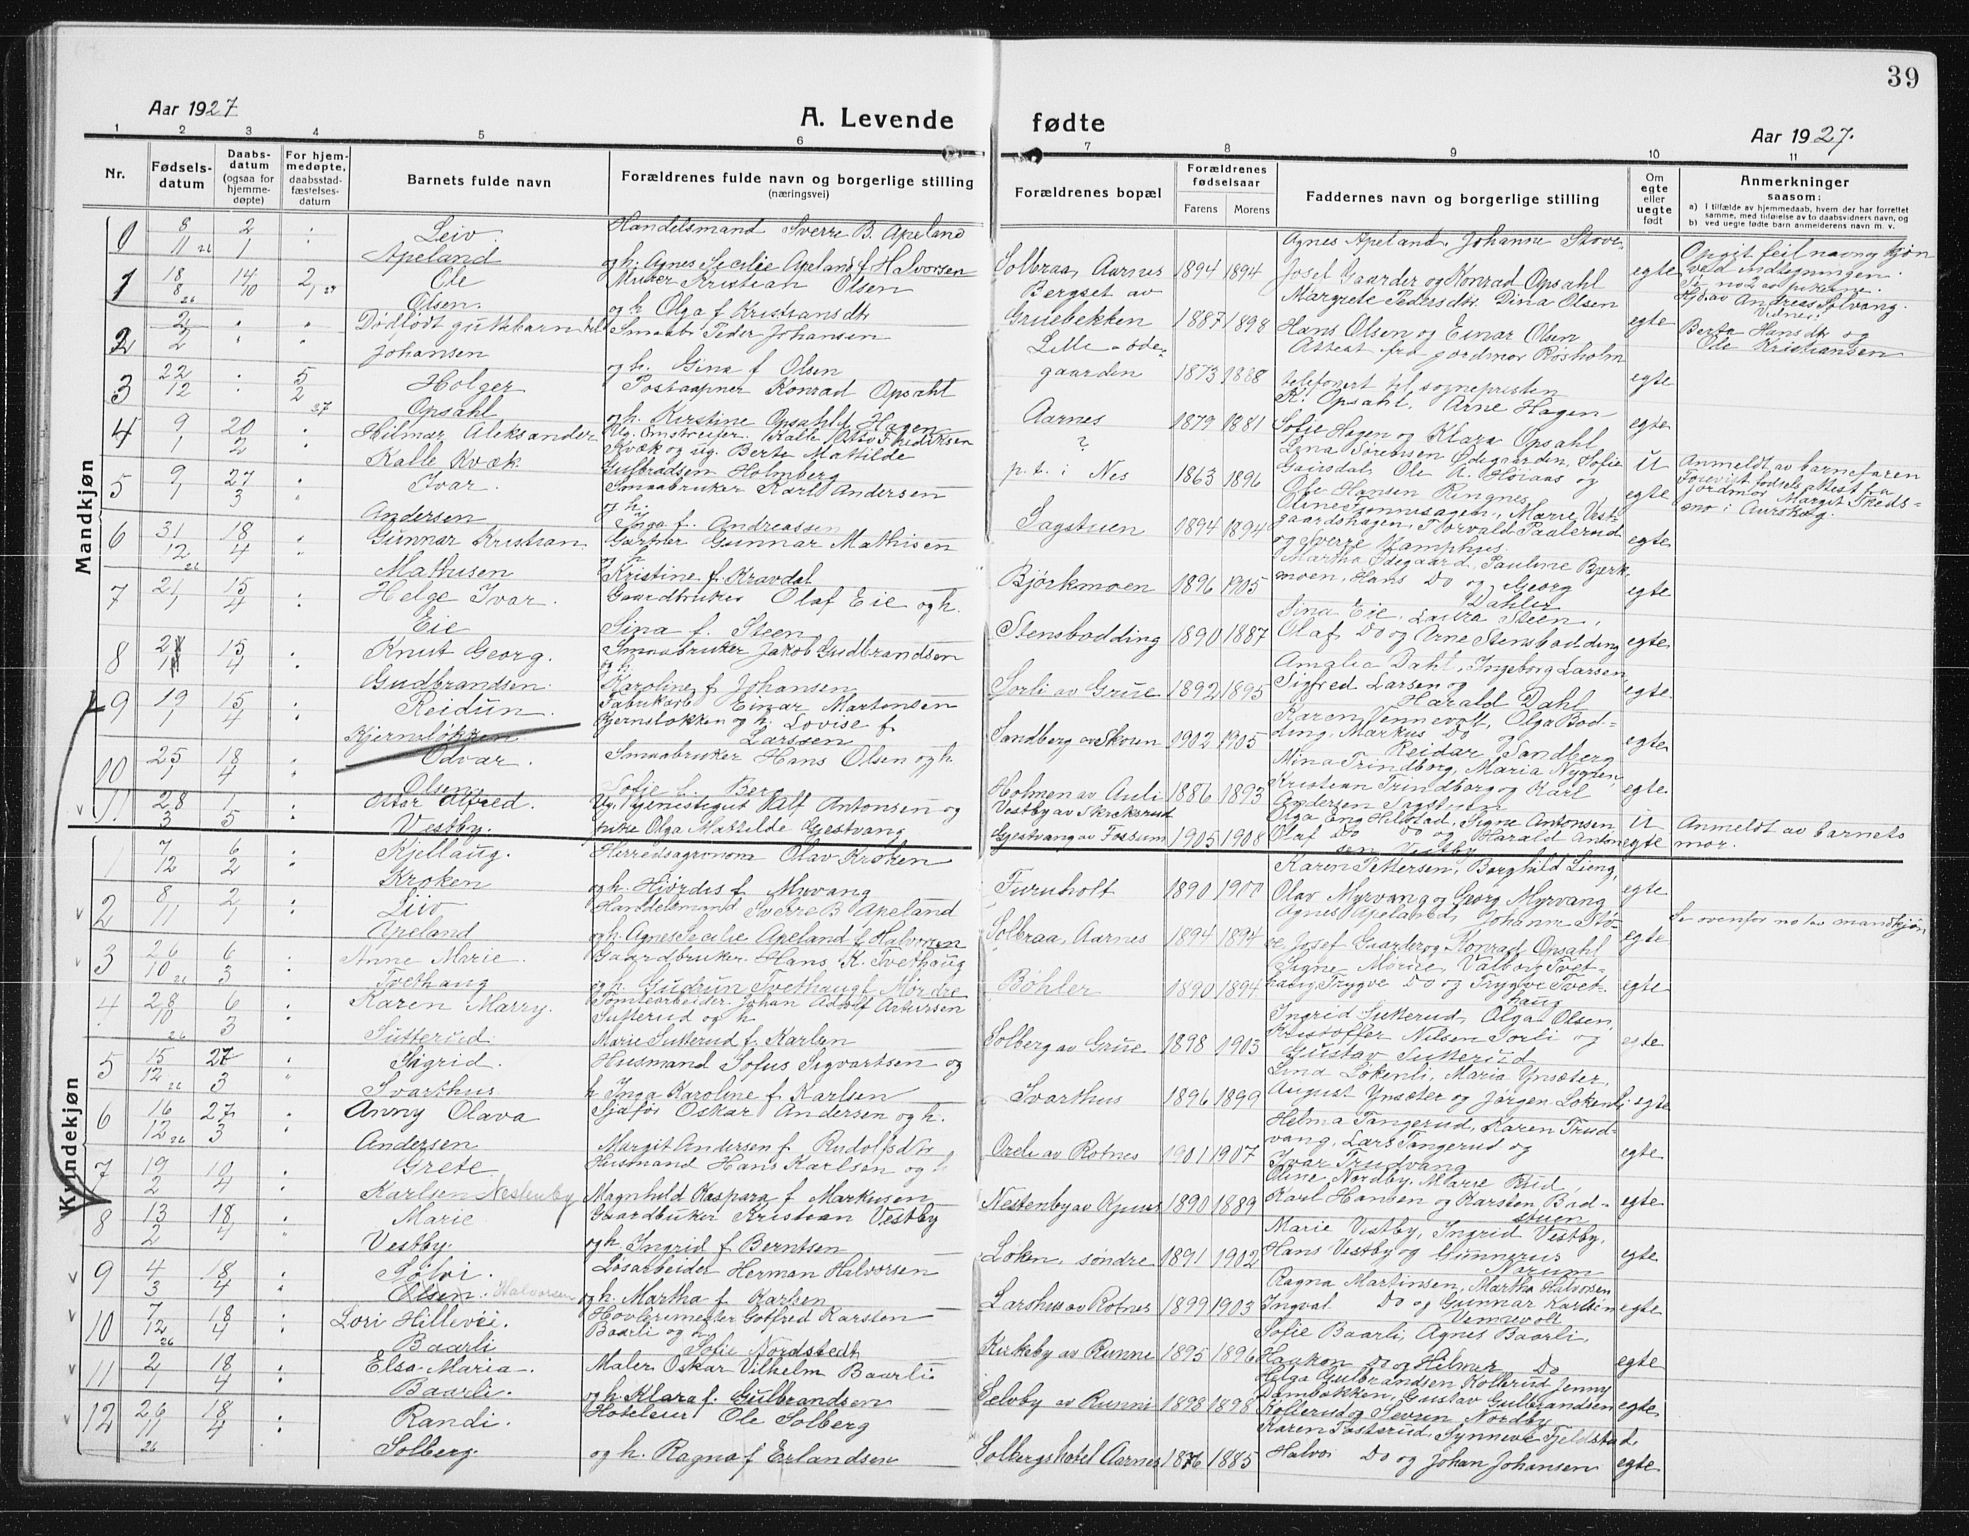 39
Aar 1927
A. Levende fødte
Aar 1927.
1 2 3 4 5 6 7 8 9 10 11
Nr.
Fødsels-
datum
Daabs-
datum
(ogsaa for
hjemme-
døpte)
For hjem-
medøpte,
daabsstad-
fæstelses-
datum
Barnets fulde navn
Forældrenes fulde navn og borgerlige stilling
(næringsvei)
Forældrenes bopæl
Forældrenes
fødselsaar
Farens Morens
Faddernes navn og borgerlige stilling
Om
egte
eller
uegte
født
Anmerkninger
saasom:
a) I tilfælde av hjemmedaab, hvem der har forrettet
samme, med tilføielse av to daabsvidners navn, og
b) ved uegte fødte barn anmelderens navn m. v.
Mandkjøn
0 8/11 26 2/1 Leiv Apeland
Handelsmand Sverre B. Apeland
og h. Agnes Secilie Apeland f. Halvorsen
Solbraa, Aarnes 1894 1894
Agnes Apeland, Johanne Stove,
Josef Gaarder og Konrad Opsahl
egte
Opgit feil navn og kjøn
ved indtegningen.
Se no 2 av pikerne.
1 18/8 26 14/10 2/1 27 Ole Olsen
Murer Kristian Olsen
og h. Olga f. Kristiansdtr
Bergset av
Gruebekken 1887 1898
Margrete Pedersdtr, Dina Olsen
Hans Olsen og Einar Olsen
egte
Hj. av Andreas Alvang.
Vidner:
Berte Hansdtr og
Ole Kristiansen
2 2/2 Dødfødt guttebarn
Johansen
Smaabr. Peder Johansen
og h. Gina f. Olsen
Lille-øde-
gaarden 1873 1888
Attest fra jordmor Røsholm
telefonert til sognepresten
egte
3 22/12 5/2 27 Holger Opsahl
Postaapner Konrad Opsahl
og h. Kirstine Opsahl f. Hagen
Aarnes 1879 1881
K. Opsahl, Arne Hagen
Sofie Hagen og Klara Opsahl
egte
4 9/1 20/2 Hilmar Aleksander
Kalle Kvæk
Ug. Omstreifer Kalle Otto Fredriksen
Kvæk og ug. Berte Mathilde
Gulbradsen Holmberg
?
p. t. i Nes 1863 1896
Lena Sørensen Ødegaarden, Sofie
Gaarsdal, Ole A. Høiaas og
Ole Hansen Ringnes
U
Anmeldt av barnefaren
5 9/1 27/3 Ivar Andersen
Smaabruker Karl Andersen
og h.
Inga f. Andreassen
Sagstuen 1894 1894
Marie Vest-
gaardshagen, Torvald Paalerud
og Sverre Kamphus
egte
Forevist fødselsattest fra
jordmor Margit Skeds-
mo i Aurskog.
6 31/12 26 18/4 Gunnar Kristian
Mathisen
Gartner Gunnar Mathisen
og h.
Kristine f. Kravdal
Bjørkmoen 1896 1905
Martha Ødegaard, Pauline Bjerk-
moen, Hans Do og Georg
Dahler
egte
7 21/1 15/4 Helge Ivar
Eie
Gaardbruker Olaf Eie og h.
Sina f. Steen
Stensbodding 1890 1887
Sina Eie, Laura Steen,
Olaf Do og Arne Stensbodding
egte
8 15/4 Knut Georg
Gudbrandsen
Smaabruker Jakob Gudbrandsen
og h.
Karoline f. Johansen
Sorli av Grue 1892 1895
Amalia Dahl, Ingeborg Larsen,
Sigfred Larsen og
Harald Dahl
egte
9 19/1 15/4 Reidun
Kjernsløkken
Fabrikarb. Einar Martensen
Kjernsløkken og h. Lovise f.
Larssen
Sandberg av Skoen 1902 1905
Karen Vennevolt, Olga Bod-
ding, Markus Do og
Reidar Sandberg
egte
10 25/1 18/4 Odvar
Olsen
Smaabruker Hans Olsen og h.
Sofie f. Berg
Holmen av Auli 1886 1893
Mina Trindborg, Maria Nygren,
Kristian Trindborg og Karl
Andersen Sagstuen
egte
11 28/3 1/5 Alfred
Vestby
Ug. Tjenestegut Alf Antonsen og
pike Olga Mathilde Gjestvang
Vestby av Skreksrud
Gjestvang av Fossum 1905 1908
Olga Eng Hilstad, Signe Antonsen,
Olaf Do Do og Harald Anton-
sen Vestby
U
egte
Anmeldt av barnets
mor.
Kvindekjøn
1 7/12 6/2 Kjellaug
Kroken
Herredsagronom Olav Kroken
og h. Hjørdis f. Myrvang
Furuholt 1890 1900
Karen Pettersen, Borghild Lieng,
Olav Myrvang og Georg Myrvang
egte
2 8/11 2/1 Liv
Apeland
Handelsmand Sverre B. Apeland
og h. Agnes Secilie Apeland f. Halvorsen
Solbraa, Aarnes 1894 1894
Agnes Apeland, Johanne Sto-
ve, Josef Gaarder og Konrad Opsahl
egte
Se ovenfor no 1 av mandkjøn
3 26/10 26 6/3 Anne Marie
Tvethaug
Gaardbruker Hans K. Tvethaug
og h. Gudrun Tvethaug f. Mordre
Bøhler 1890 1894
Signe Mørdre, Valborg Tvet-
haug, Trygve Do og Trygve Tvet-
haug
egte
4 28/10 26 6/3 Karen Marry
Sutterud
Tomtearbeider Johan Adolf Antonsen
Sutterud og h.
Marie Sutterud f. Karlsen
Solberg av Grue 1898 1903
Ingrid Sutterud, Olga Olsen,
Kristoffer Nilsen Sorli og
Gustav Sutterud
egte
5 15/12 26 27/3 Sigrid
Svarthus
Husmand Sofus Sigvartsen og
h. Inga Karoline f. Karlsen
Svarthus 1896 1899
Lina Løkenli, Maria Ynsæter,
August Ynsæter og Jørgen Løkenli
egte
6 16/12 26 27/3 Anny Olava
Andersen
Sjåfør Oskar Andersen og h.
Margit Andersen f. Rudolfsdtr
Øreli av Rotnes 1901 1907
Helma Tangerud, Karen Trud-
vang, Lars Tangerud og
Ivar Trudvang
egte
7 19/2 10/4 Grete
Karlsen Nestenby
Husmand Hans Karlsen og h
Magnhild Kaspara f. Markusen
Nestenby av Kjuus 1890 1889
Oline Nordby, Marie Bud,
Karl Hansen og Karsten Bud-
stuen
egte
8 13/2 18/4 Marie
Vestby
Gaardbuker Kristian Vestby
og h. Ingrid f. Berntsen
Løken, søndre 1891 1902
Marie Vestby, Ingrid Vestby,
Hans Vestby og Gunnerus
Narum
egte
9 4/3 18/4 Sølvi
Olsen Halvorsen
Løsarbeider Herman Halvorsen
og h. Martha f. Karlsen
Larshus av Rotnes 1899 1903
Ragna Martinsen, Martha Halvorsen
Ingval Do og Gunnar Karlsen
Vennevolt
egte
10 7/12 26 18/4 Lori Hillevei
Baarli
Høvlerimester Gotfred Karsten
Baarli og h.
Sofie Nordstedt
Kirkeby av Runni 1895 1896
Sofie Baarli, Agnes Baarli,
Haakon Do og Hilmar Do
egte
11 2/1 18/4 Elsa Maria
Baarli
Maler Oskar Vilhelm Baarli
og h. Klara f. Gulbrandsen
Selvby av Runni 1898 1898
Helga Gulbrandsen Kollerud, Jenny
Dambakken, Gustav Gulbrandsen
Kollerud og Nordby
egte
12 26/11 26 18/4 Randi
Solberg
Hoteleier Ole Solberg
og h. Ragna f. Erlandsen
Solbergs hotel Aarnes 1876 1885
Karen Fosterud, Synneve Fjeldstad,
Halvor Do og Johan Johansen
egte